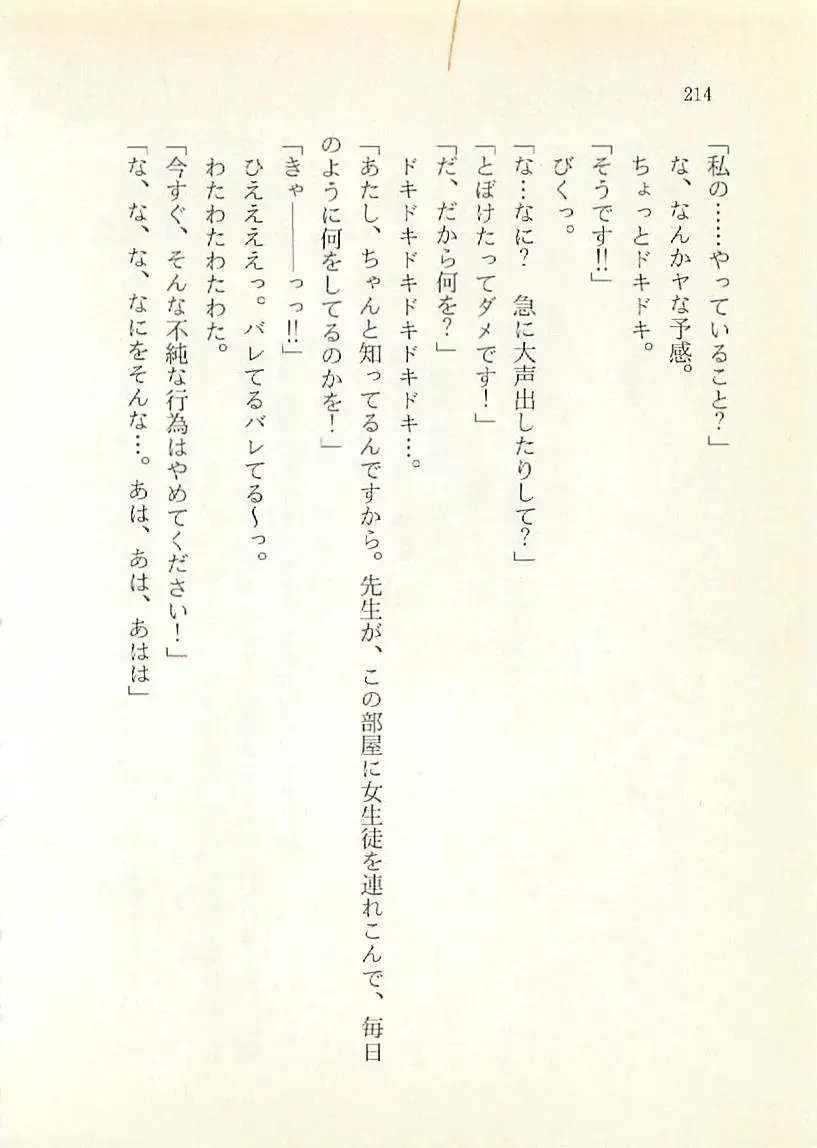 214
「私の……やっていること？」
な、なんかヤな予感。
ちょっとドキドキ。
「そうです!!」
びくっ。
「な…なに？　急に大声出したりして？」
「とぼけたってダメです！」
「だ、だから何を？」
ドキドキドキドキドキドキ…。
「あたし、ちゃんと知ってるんですから。先生が、この部屋に女生徒を連れこんで、毎日
のように何をしてるのかを！」
「きゃ――っっ!!」
ひええええっ。バレてるバレてる～っ。
わたわたわたわた。
「今すぐ、そんな不純な行為はやめてください！」
「な、な、な、なにをそんな…。あは、あは、あはは」